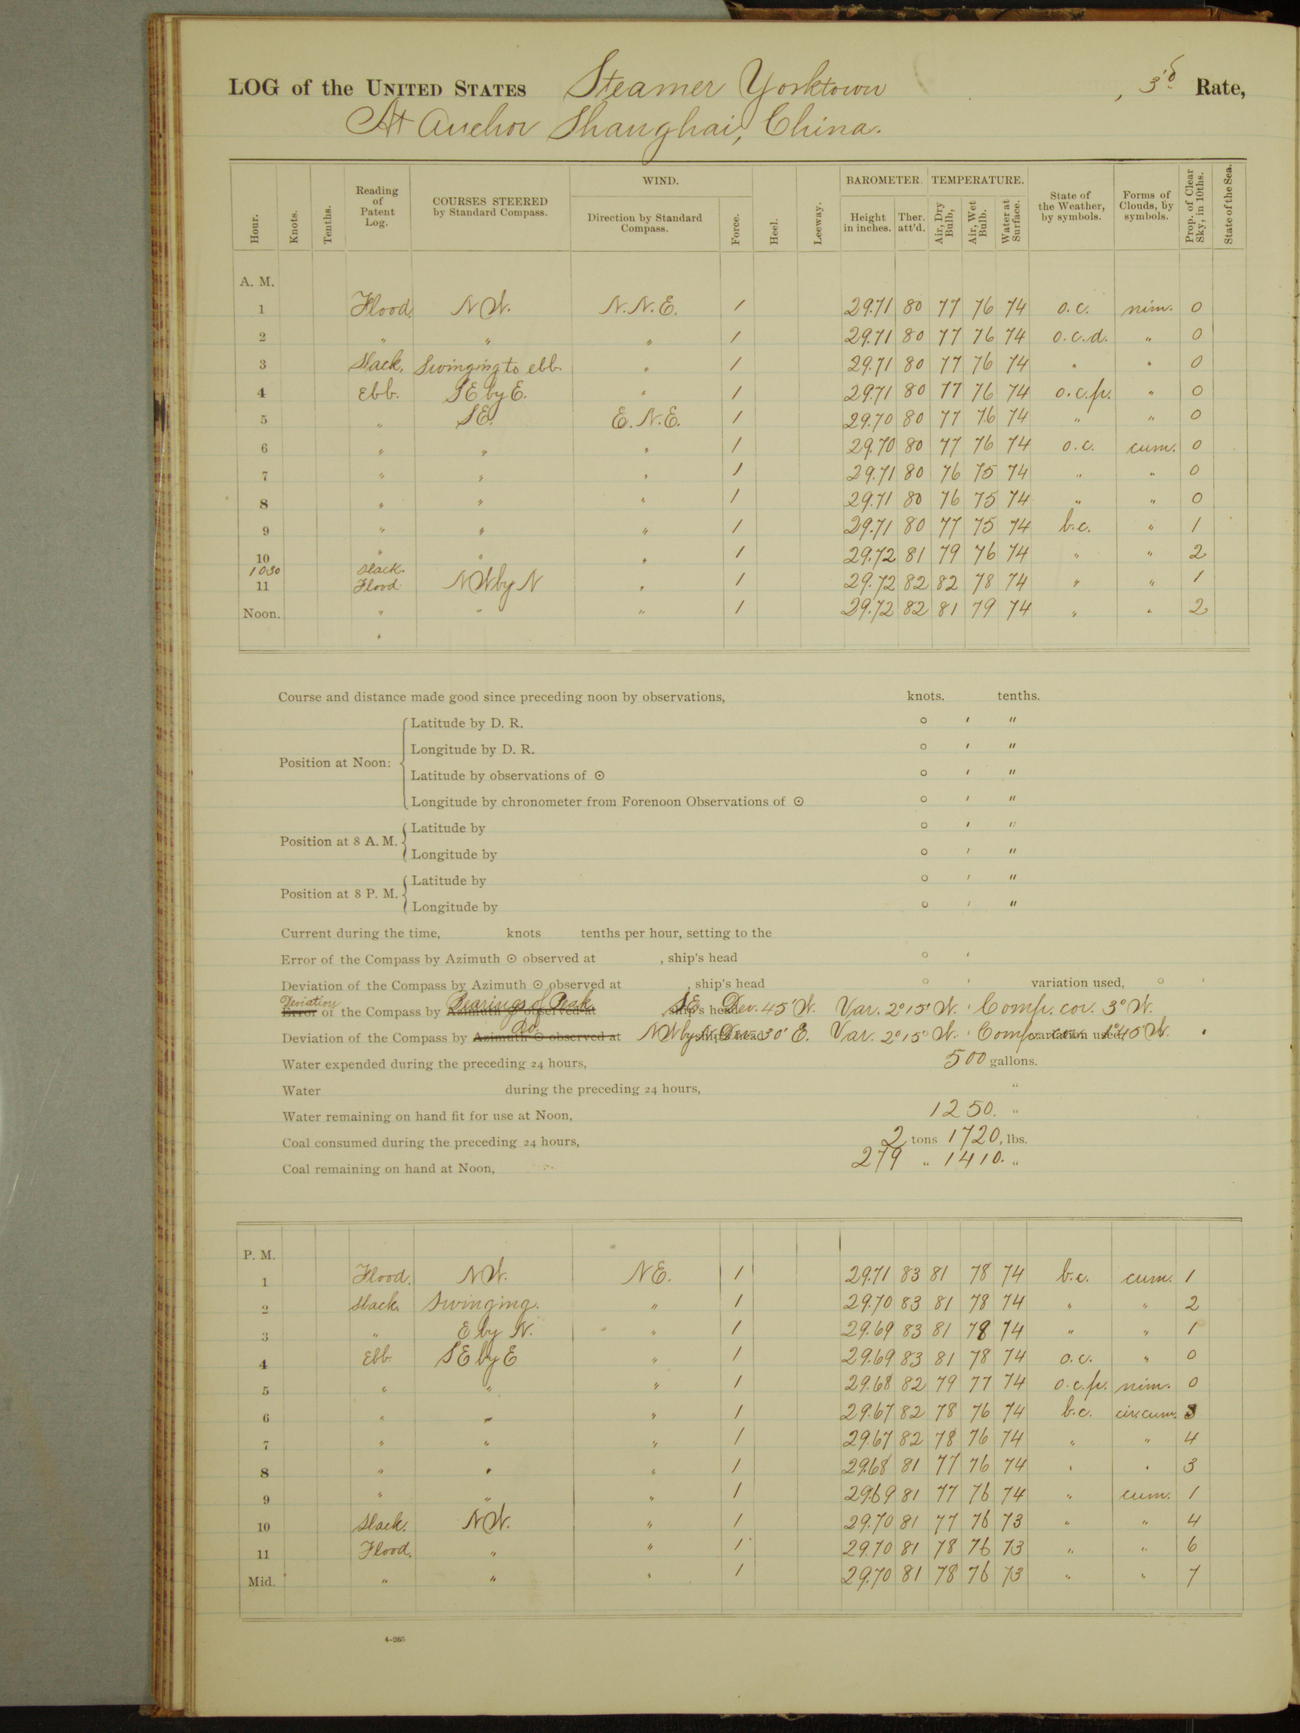 LOG of the UNITED STATES Steamer Yorktown , 3rd Rate,
At Anchor Shanghai, China.
Hour. Knots. Tenths. Reading of Patent Log. COURSES STEERED by Standard Compass. WIND. Direction by Standard Compass. Force. Heel. Leeway. BAROMETER. Height in inches. Ther. att'd. TEMPERATURE. Air, Dry Bulb, Air, Wet Bulb. Water at Surface. State of the Weather, by symbols. Forms of Clouds, by symbols. Prop. of Clear Sky, in 10ths. State of the Sea.
A. M.
1 Flood. NW. N.N.E. 1 29.71 80 77 76 74 o.c. nim. 0
2 " " " 1 29.71 80 77 76 74 o.c.d. " 0
3 Slack. Swinging to ebb. " 1 29.71 80 77 76 74 " " 0
4 Ebb. SE by E. " 1 29.71 80 77 76 74 o.c.p. " 0
5 " SE. E.N.E. 1 29.70 80 77 76 74 " " 0
6 " " " 1 29.70 80 77 76 74 o.c. cum. 0
7 " " " 1 29.71 80 76 75 74 " " 0
8 " " " 1 29.71 80 76 75 74 " " 0
9 " " " 1 29.71 80 77 75 74 b.c. " 1
10 " " " 1 29.72 81 79 76 74 " " 2
1030 Slack.
11 Flood NW by N " 1 29.72 82 82 78 74 " " 1
Noon. " " " 1 29.72 82 81 79 74 " " 2
"
Course and distance made good since preceding noon by observations, knots. tenths.
Position at Noon:
Latitude by D. R. ° ' "
Longitude by D. R. ° ' "
Latitude by observations of ☉ ° ' "
Longitude by chronometer from Forenoon Observations of ☉ ° ' "
Position at 8 A. M.
Latitude by ° ' "
Longitude by ° ' "
Position at 8 P. M.
Latitude by ° ' "
Longitude by ° ' "
Current during the time, knots tenths per hour, setting to the
Error of the Compass by Azimuth ☉ observed at , ship's head ° '
Deviation of the Compass by Azimuth ☉ observed at , ship's head ° ' variation used, ° '
Deviation Error of the Compass by Bearings of Peak. Azimuth ☉ observed at , ship's head SE. Dev. 45' W. Var. 2° 15' W. Comp. cor. 3° W.
Deviation of the Compass by Do. Azimuth ☉ observed at , ship's head NW by N. Dev. 30' E. Var. 2° 15' W. variation used, 1° 45' W.
Water expended during the preceding 24 hours, 500 gallons.
Water during the preceding 24 hours, "
Water remaining on hand fit for use at Noon, 1250. "
Coal consumed during the preceding 24 hours, 2 tons 1720, lbs.
Coal remaining on hand at Noon, 279 " 1410. "
P. M.
1 Flood. NW. NE. 1 29.71 83 81 78 74 b.c. cum. 1
2 Slack. Swinging. " 1 29.70 83 81 78 74 " " 2
3 " E by N. " 1 29.69 83 81 78 74 " " 1
4 Ebb SE by E " 1 29.69 83 81 78 74 o.c. " 0
5 " " " 1 29.68 82 79 77 74 o.c.p. nim. 0
6 " " " 1 29.67 82 78 76 74 b.c. cir.cum. 3
7 " " " 1 29.67 82 78 76 74 " " 4
8 " " " 1 29.68 81 77 76 74 " " 3
9 " " " 1 29.69 81 77 76 74 " cum. 1
10 Slack. NW. " 1 29.70 81 77 76 73 " " 4
11 Flood. " " 1 29.70 81 78 76 73 " " 6
Mid. " " " 1 29.70 81 78 76 73 " " 7
4-265